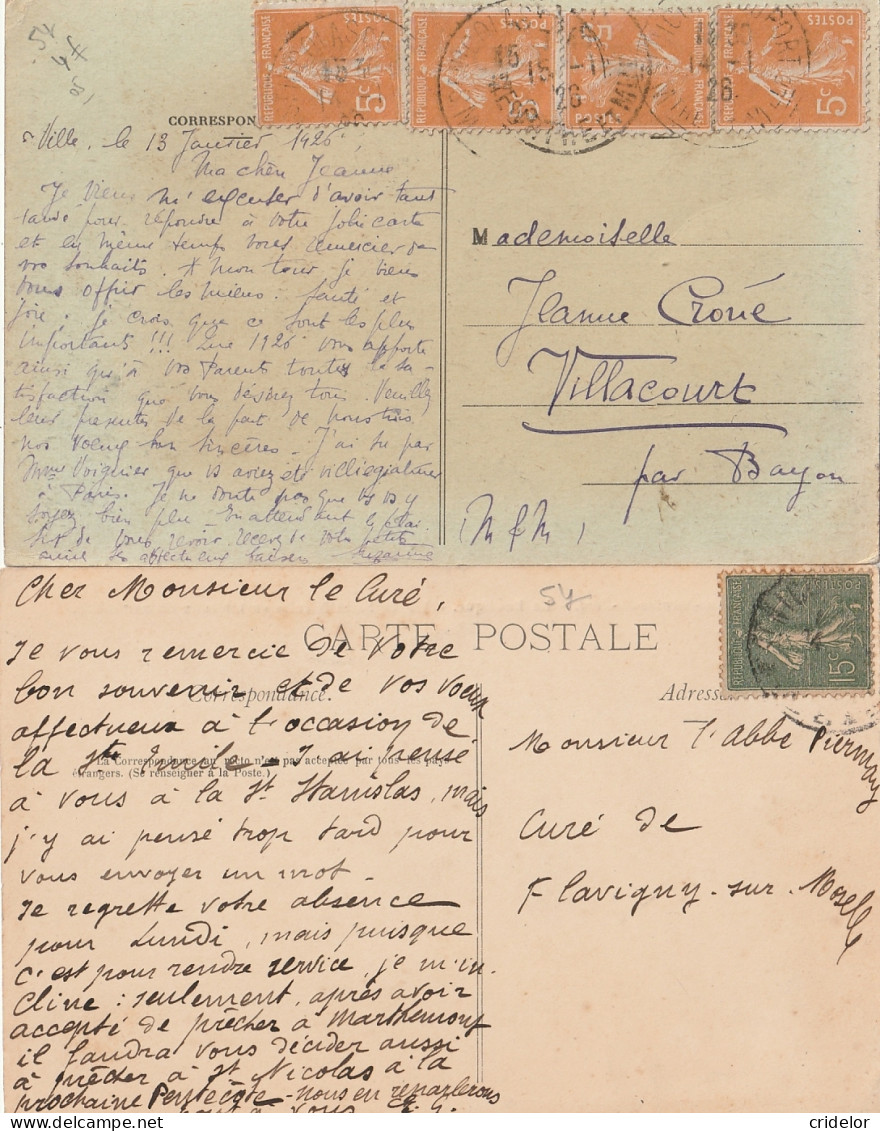 54
4f
CORRESPON
Ville, le 13 Janvier 1926
Ma chère Jeanne
Je viens m'excuser d'avoir tant
tardé pour répondre à votre jolie carte
et en même temps vous remercier de
vos souhaits. A mon tour je viens
vous offrir les miens: Santé et
joie. je crois que ce sont les plus
importants !!! Que 1926 vous apporte
ainsi qu'à vos Parents toutes la sa-
tisfaction que vous désirez tous. Veuillez
leur présenter de la part de nous trois
nos voeux bien sincères. J'ai su par
Mme Voignier que vs aviez été villégiaturer
à Paris. Je ne doute pas que vs vs y
soyez bien plu. En attendant le plai-
sir de vous revoir, recevez de votre petite
amie les affectueux baisers Suzanne
REPUBLIQUE FRANÇAISE POSTES 5c
REPUBLIQUE FRANÇAISE POSTES
15 15-1 26
REPUBLIQUE FRANÇAISE POSTES 5c
26
Mademoiselle
Jeanne Croué
Villacourt
par Bayon
(M & M)
Cher Monsieur le Curé,
54
CARTE POSTALE
REPUBLIQUE FRANÇAISE POSTES 15c
Je vous remercie de votre
bon souvenir et de vos voeux
Correspondance.
Adresse
affectueux à l'occasion de
la Ste Emile - J'ai pensé
La Correspondance au recto n'est pas acceptée par tous les pays
étrangers. (Se renseigner à la Poste.)
à vous à la St Stanislas, mais
j'y ai pensé trop tard pour
vous envoyer un mot.
Je regrette votre absence
pour Lundi, mais puisque
c'est pour rendre service, je m'in-
cline: seulement, après avoir
accepté de prêcher à Marthemont
il faudra vous décider aussi
à prêcher à St Nicolas à la
prochaine Pentecôte - nous en reparlerons
à vous
Monsieur l'Abbé Piermay
Curé de
Flavigny-sur-Moselle
cridelor